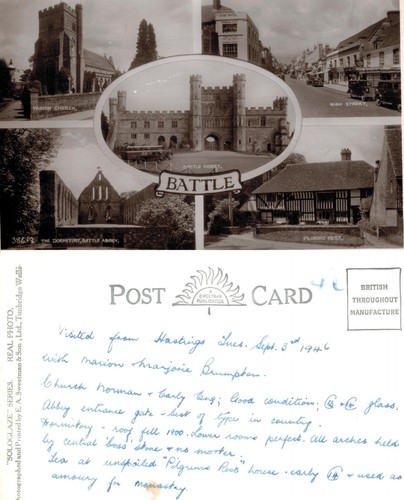 PARISH CHURCH.
HIGH STREET.
BATTLE ABBEY.
BATTLE
38612 THE DORMITORY, BATTLE ABBEY.
PILGRIMS REST.
POST CARD
A SWEETMAN PUBLICATION
BRITISH THROUGHOUT MANUFACTURE
"SOLOGLAZE" SERIES. REAL PHOTO,
Photographed and Printed by E. A. Sweetman & Son, Ltd., Tunbridge Wells.
Visited from Hastings Tues. Sept. 3rd 1946
with Marion & Marjorie Brumpton.
Church Norman & Early Eng; Good condition; glass.
Abbey entrance gate - best of type in country.
Dormitory - roof fell 1900. Lower rooms perfect. All arches held
by central 'boss' stone & no mortar.
Tea at unspoiled "Pilgrims Rest" house - early & used as
amoury for monastry